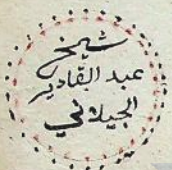 شيخ
عبد القادر
الجيلاني